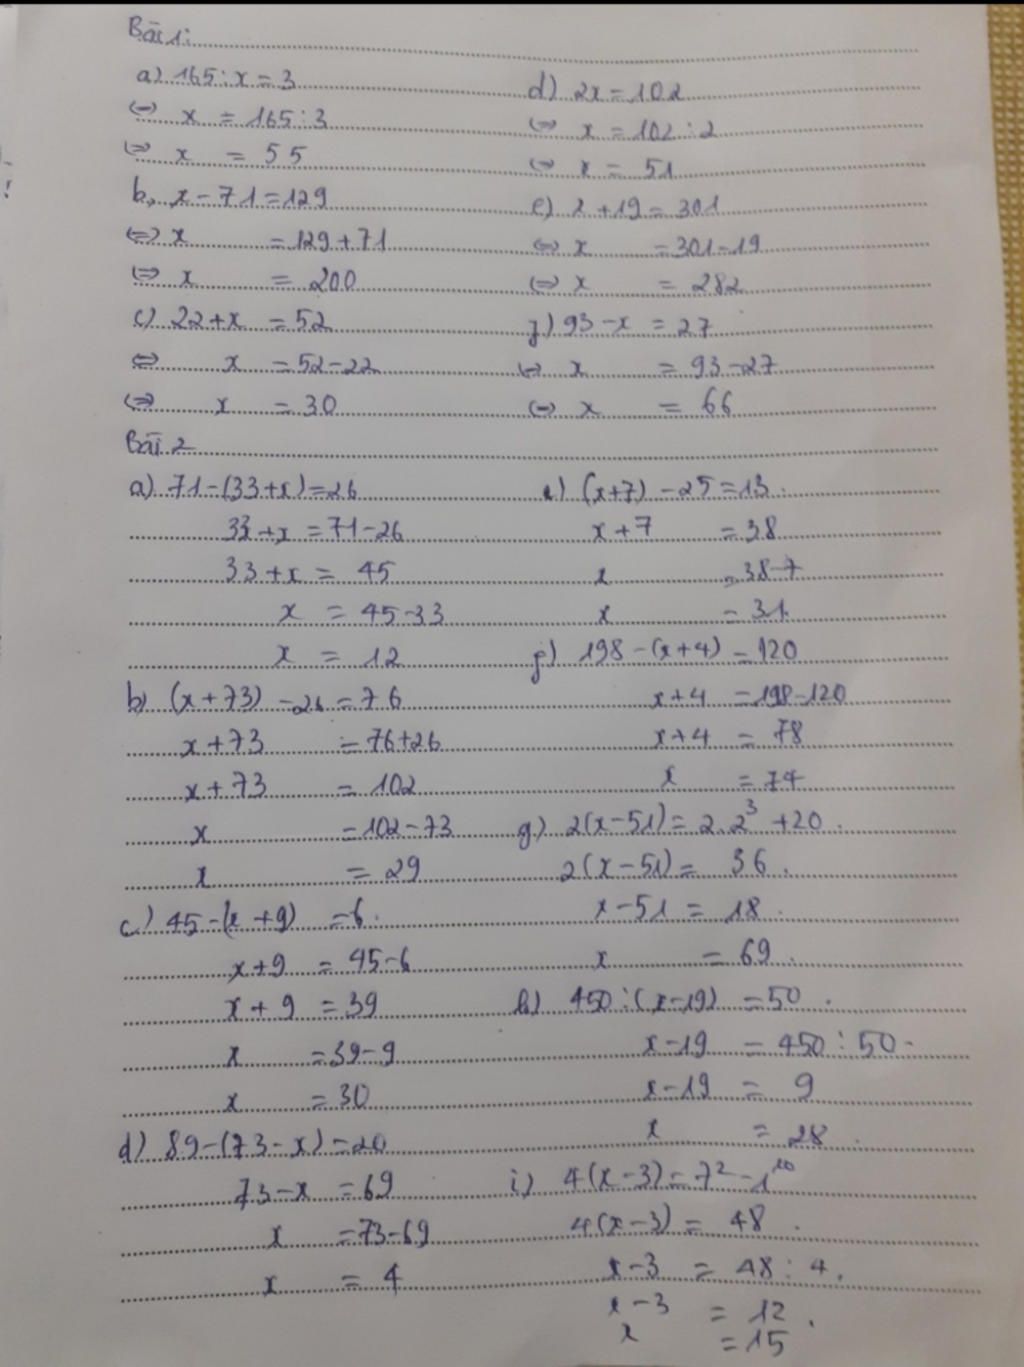 Bài 1:
a) 165 : x = 3
(=) x = 165 : 3
(=) x = 55
b, x - 71 = 129
(=) x = 129 + 71
(=) x = 200
c) 22 + x = 52
(=) x = 52 - 22
(=) x = 30
d) 2x = 102
(=) x = 102 : 2
(=) x = 51
e) x + 19 = 301
(=) x = 301 - 19
(=) x = 282
f) 93 - x = 27
(=) x = 93 - 27
(=) x = 66
Bài 2
a) 71 - (33 + x) = 26
33 + x = 71 - 26
33 + x = 45
x = 45 - 33
x = 12
b) (x + 73) - 26 = 76
x + 73 = 76 + 26
x + 73 = 102
x = 102 - 73
x = 29
c) 45 - (x + 9) = 6.
x + 9 = 45 - 6
x + 9 = 39
x = 39 - 9
x = 30
d) 89 - (73 - x) = 20
73 - x = 69
x = 73 - 69
x = 4
e) (x + 7) - 25 = 13.
x + 7 = 38
x = 38 - 7
x = 31
f) 198 - (x + 4) = 120
x + 4 = 198 - 120
x + 4 = 78
x = 74
g) 2(x - 51) = 2.2³ + 20.
2(x - 51) = 36.
x - 51 = 18.
x = 69.
h) 450 : (x - 19) = 50.
x - 19 = 450 : 50.
x - 19 = 9
x = 28.
i) 4(x - 3) = 7² - 1²⁰
4(x - 3) = 48.
x - 3 = 48 : 4.
x - 3 = 12.
x = 15